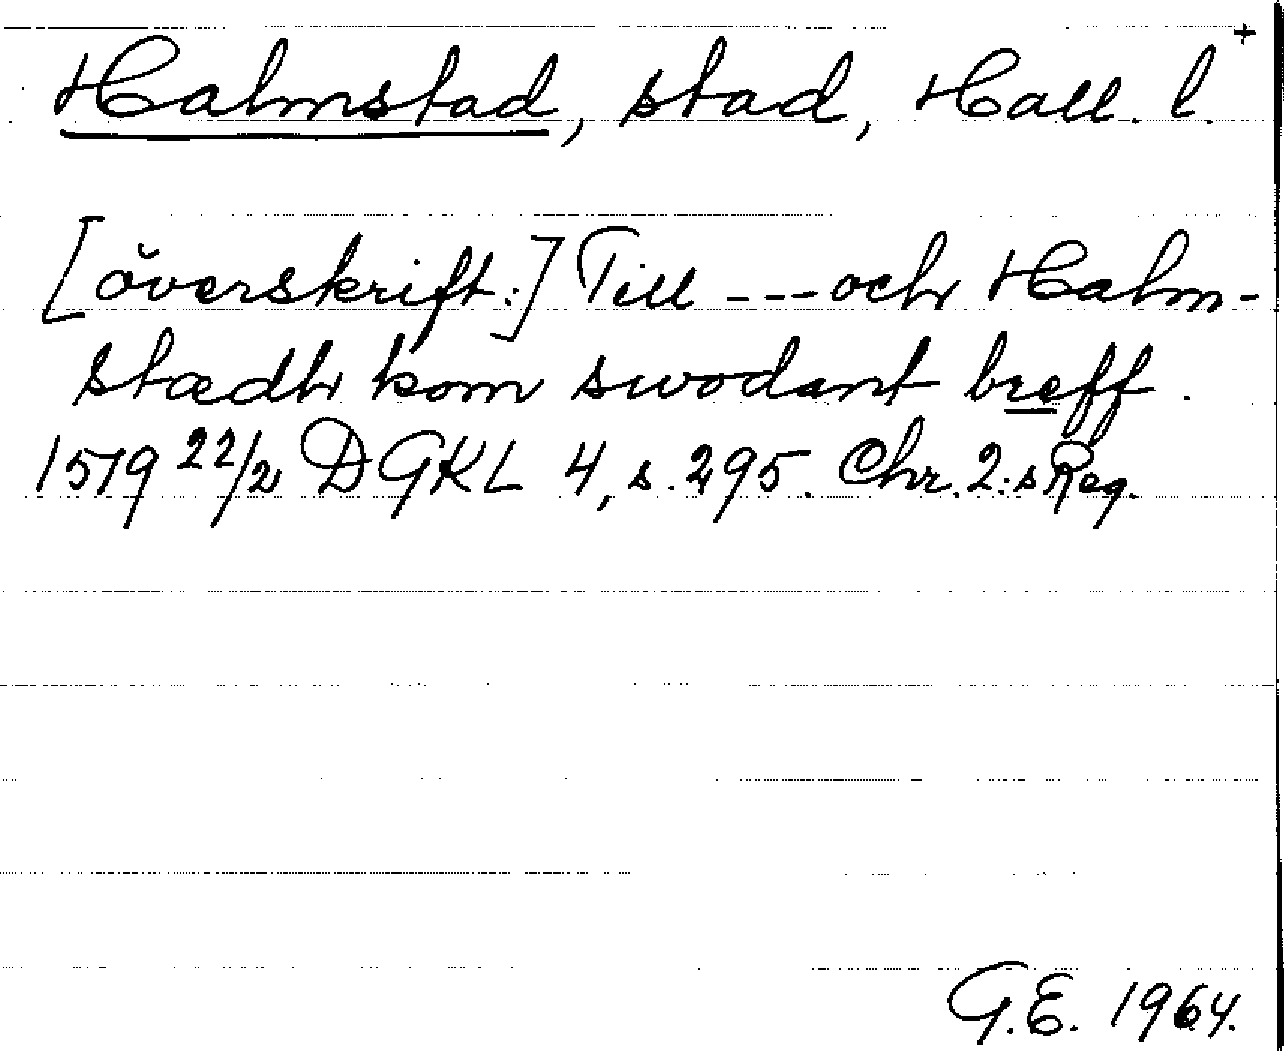 +
Halmstad, stad, Hall. l.
[överskrift:] Till --- och Halm-
stædh kom swodant breff.
1519 22/2 DGKL 4, s. 295. Chr. 2:s Reg.
G.E. 1964.